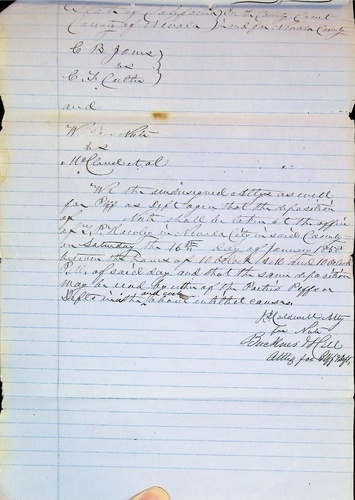 State of California } In the County Court
County of Nevada } in and for Nevada County
C B James }
vs }
C. F. Coulter }
and
W. Nute
vs
McCloud et. al
We the undersigned Attys as well
for Plff as Deft agree that the deposition
of Nute shall be taken at the office
of in Nevada City in said County
on Saturday the 16th Day of January 1858
between the hours of 10 Oclock A.M. and 10 Oclock
P.M. of said day and that the same deposition
may be read by either of the Parties Plffs or
Defts in the and each above entitled causes.
J Caldwell Atty
for Nute
Buckner & Hill
Attys for Deft